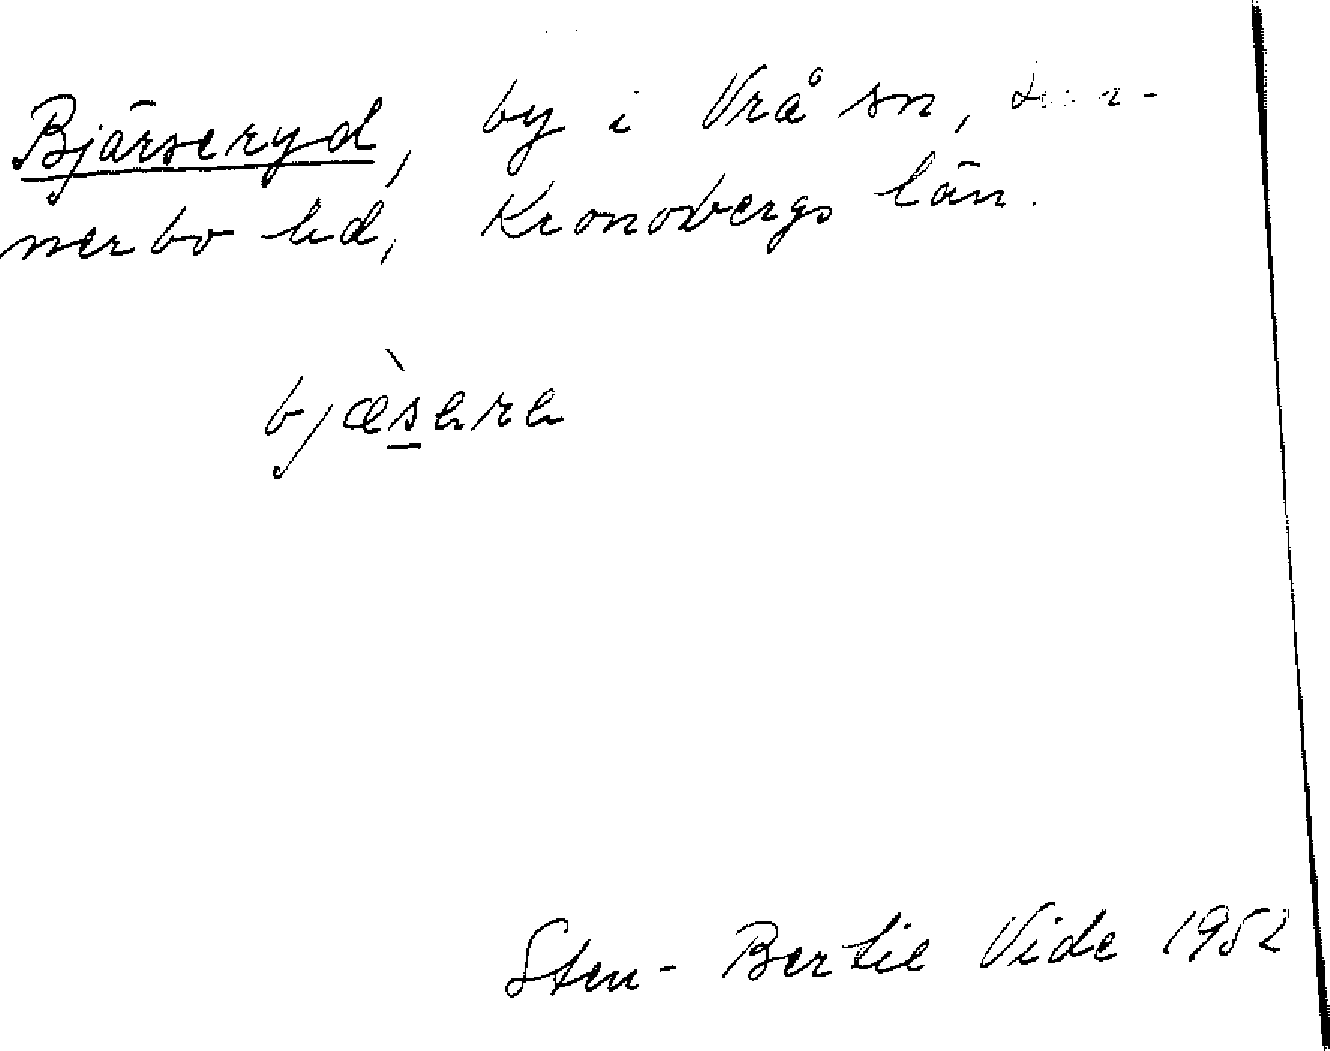 Bjärseryd, by i Vrå sn, Sun-
nerbo hd, Kronobergs län.
Sten-Bertil Vide 1952